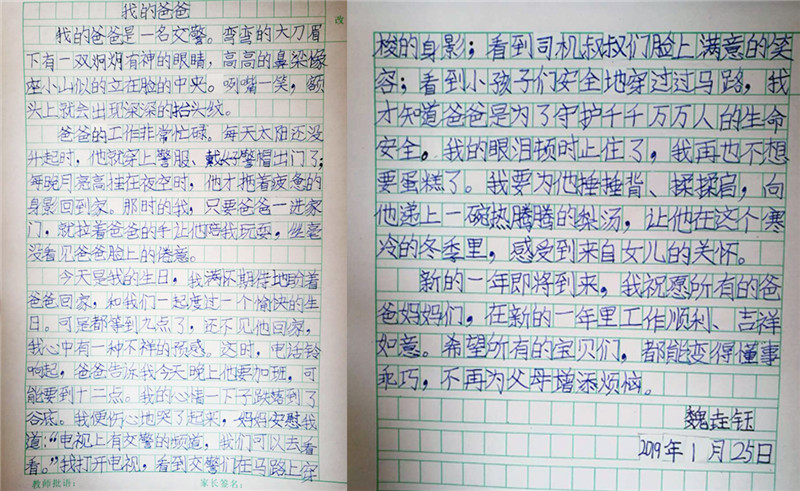 我的爸爸
改
我的爸爸是一名交警。弯弯的大刀眉
下有一双炯炯有神的眼睛，高高的鼻梁像
座小山似的立在脸的中央。咧嘴一笑，额
头上就会出现深深的抬头纹。
爸爸的工作非常忙碌。每天太阳还没
升起时，他就穿上警服、戴好警帽出门了；
每晚月亮高挂在夜空时，他才拖着疲惫的
身影回到家。那时的我，只要爸爸一进家
门，就拉着爸爸的手让他陪我玩耍，丝毫
没看见爸爸脸上的倦意。
今天是我的生日，我满怀期待地盼着
爸爸回家，和我们一起度过一个愉快的生
日。可是都等到九点了，还不见他回家，
我心中有一种不祥的预感。这时，电话铃
响起，爸爸告诉我今天晚上他要加班，可
能要到十二点。我的心情一下子跌落到了
谷底。我便伤心地哭了起来，妈妈安慰我
道：“电视上有交警的频道，我们可以去看
看。”我打开电视，看到交警们在马路上穿
教师批语： 家长签名：
梭的身影；看到司机叔叔们脸上满意的笑
容；看到小孩子们安全地穿过过马路，我
才知道爸爸是为了守护千千万万人的生命
安全。我的眼泪顿时止住了，我再也不想
要蛋糕了。我要为他捶捶背、揉揉肩，向
他递上一碗热腾腾的梨汤，让他在这个寒
冷的冬季里，感受到来自女儿的关怀。
新的一年即将到来，我祝愿所有的爸
爸妈妈们，在新的一年里工作顺利、吉祥
如意。希望所有的宝贝们，都能变得懂事
乖巧，不再为父母增添烦恼。
魏垚钰
2019年1月25日